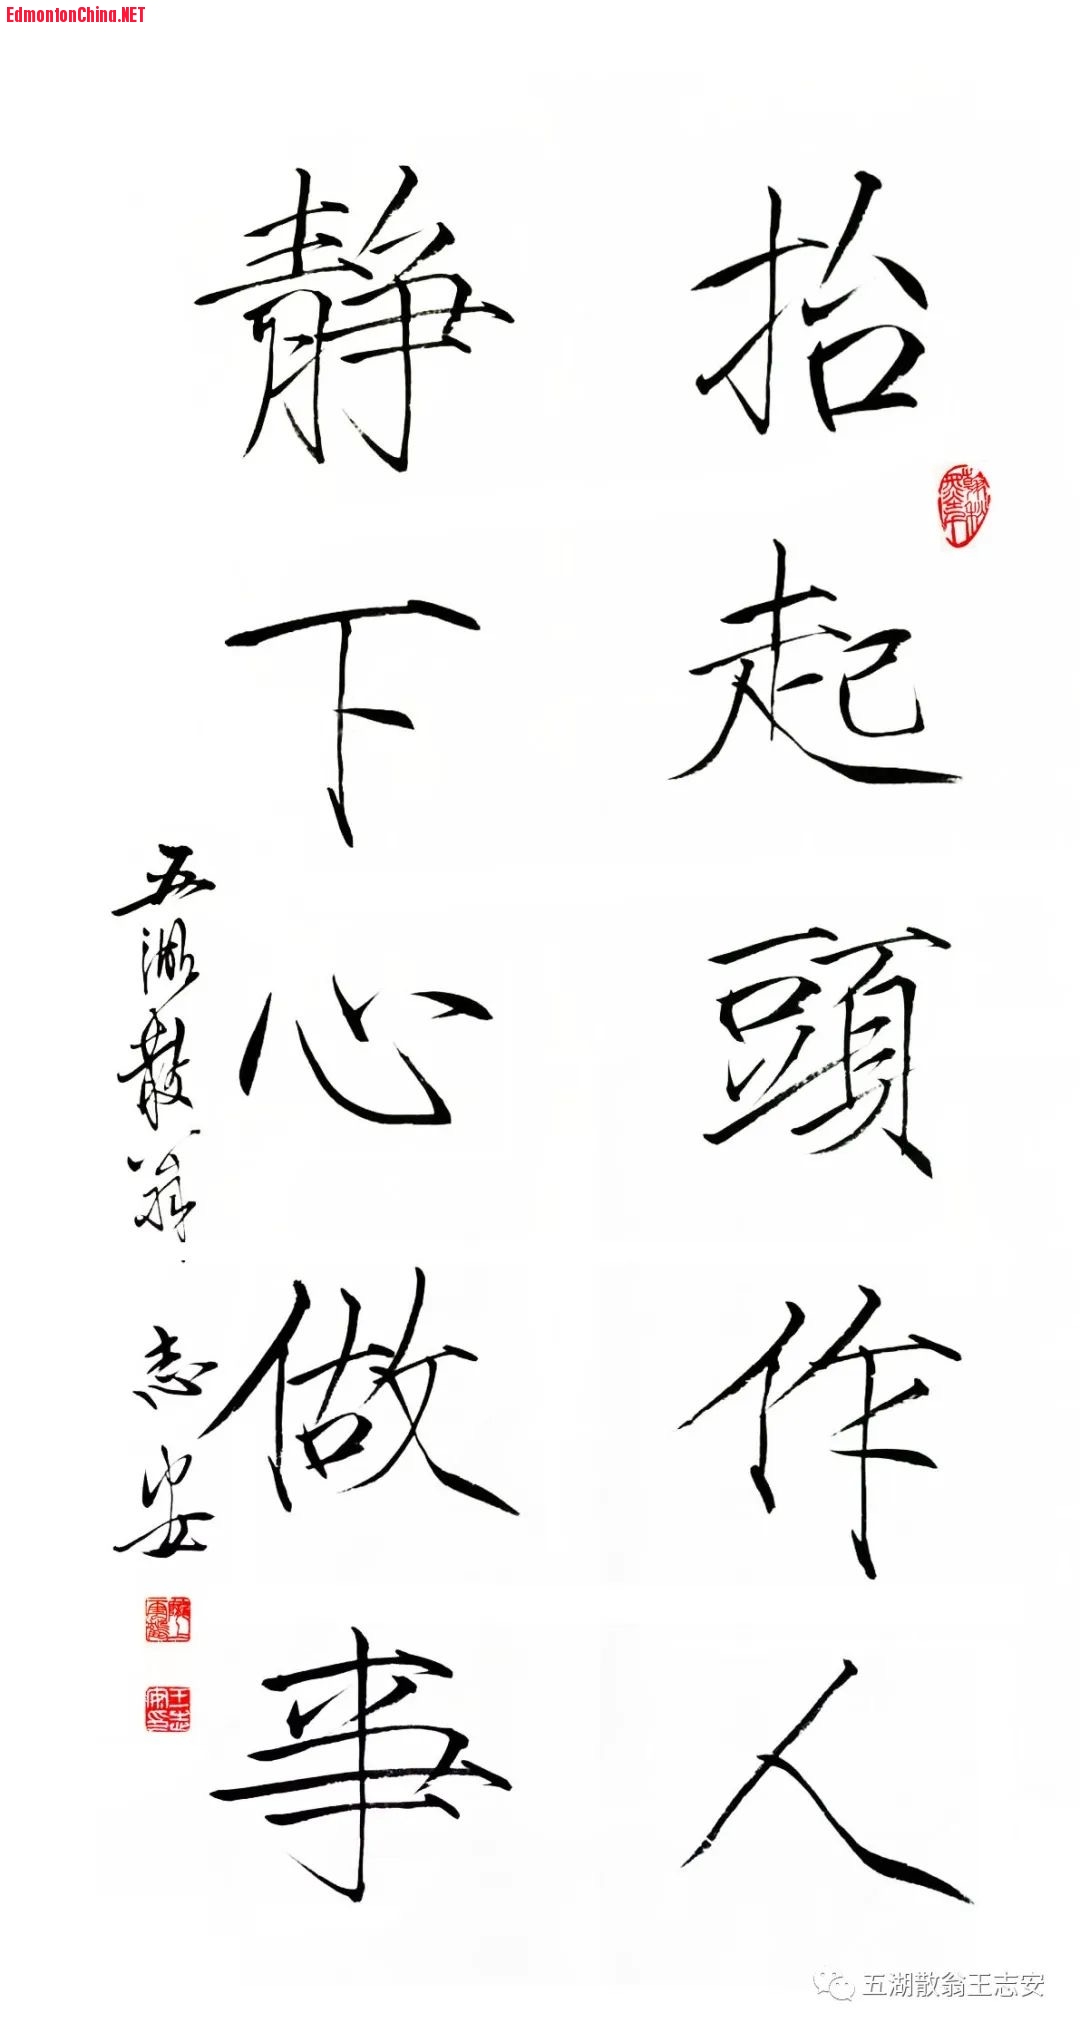 EdmontonChina.NET
抬起頭作人
静下心做事
五湖散翁 志安
王志安印
五湖散翁王志安